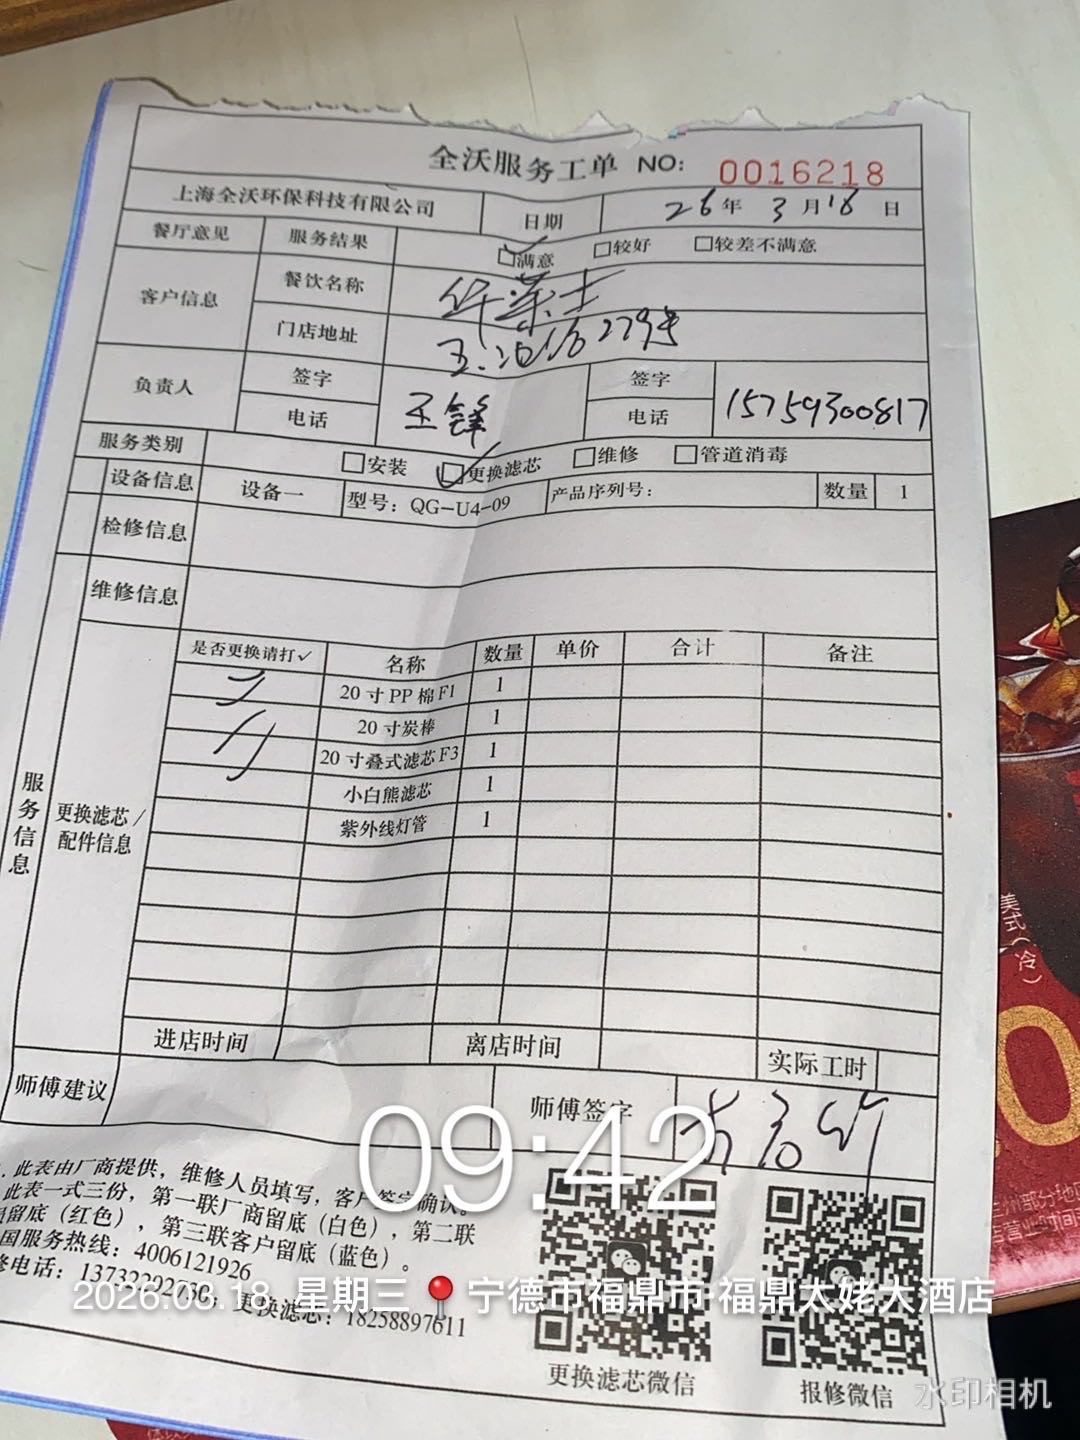 全沃服务工单 NO: 0016218
上海全沃环保科技有限公司 日期 26年 3月18日
餐厅意见 服务结果 满意 较好 较差不满意
客户信息 餐饮名称 华莱士
门店地址 279号
负责人 签字 王锋 签字
电话 电话 15759300817
服务类别 安装 更换滤芯 维修 管道消毒
设备信息 设备一 型号: QG-U4-09 产品序列号: 数量 1
检修信息
维修信息
服务信息
更换滤芯/
配件信息
是否更换请打✓ 名称 数量 单价 合计 备注
20寸PP棉F1 1
20寸炭棒 1
20寸叠式滤芯F3 1
小白熊滤芯 1
紫外线灯管 1
进店时间 离店时间 实际工时
师傅建议 师傅签字
09:42
此表由厂商提供，维修人员填写，客户签字确认。
此表一式三份，第一联厂商留底（白色），第二联
留底（红色），第三联客户留底（蓝色）。
国服务热线: 4006121926
电话:
更换滤芯: 18258897611
2026.03.18 星期三 宁德市福鼎市·福鼎太姥大酒店
更换滤芯微信
报修微信
水印相机
美式(冷)
0